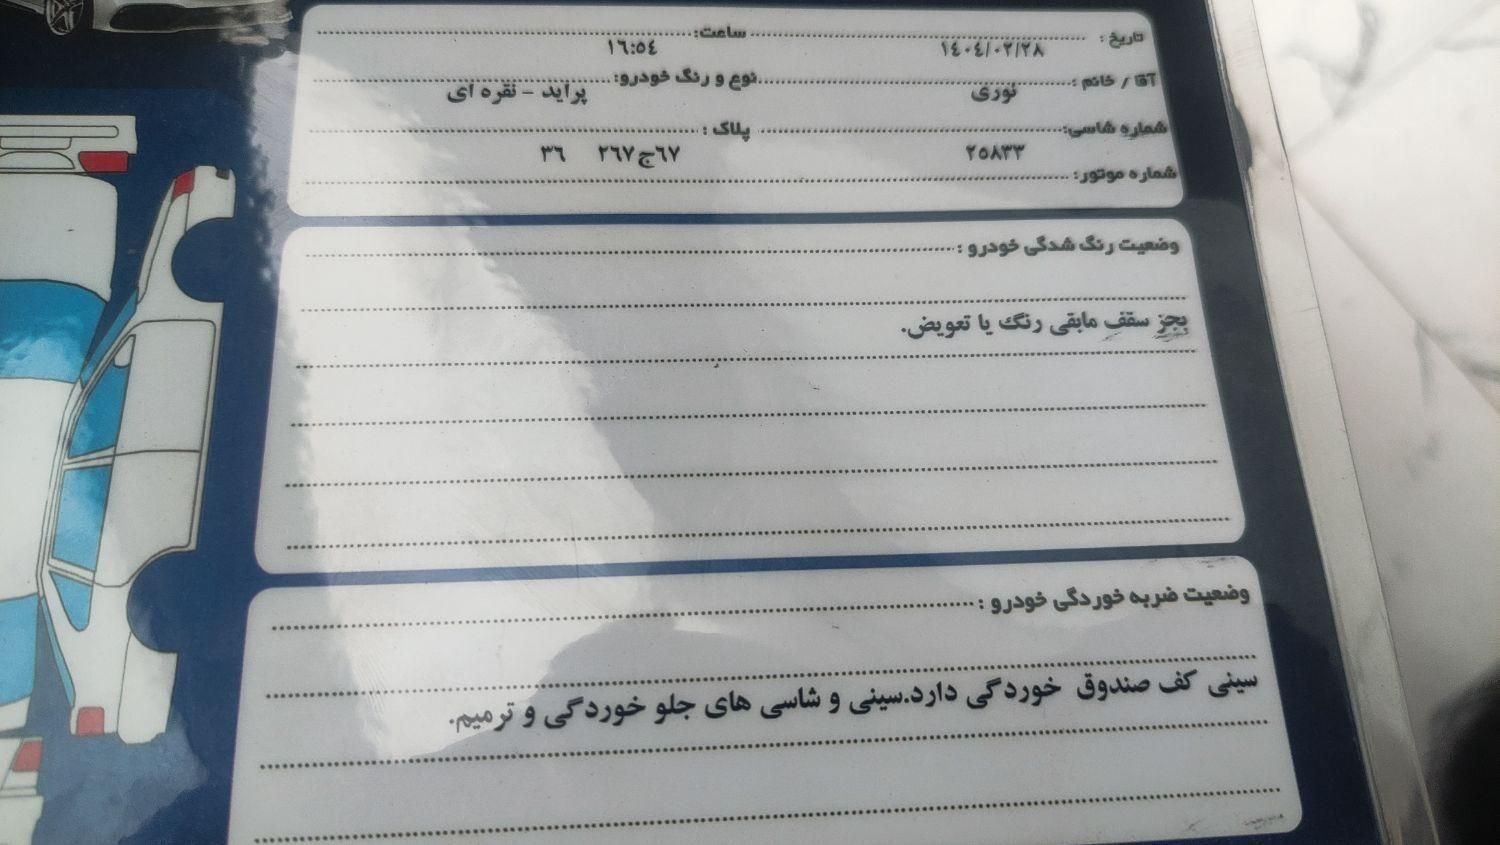 تاریخ : ساعت:
۱۴۰۴/۰۲/۲۸ ۱۶:۵۴
آقا / خانم : نوع و رنگ خودرو:
نوری پراید - نقره ای
شماره شاسی: پلاک :
۲۵۸۳۳ ۶۷ج۲۶۷ ۳۶
شماره موتور:
وضعیت رنگ شدگی خودرو :
بجز سقف مابقی رنگ یا تعویض.
وضعیت ضربه خوردگی خودرو :
سینی کف صندوق خوردگی دارد.سینی و شاسی های جلو خوردگی و ترمیم.